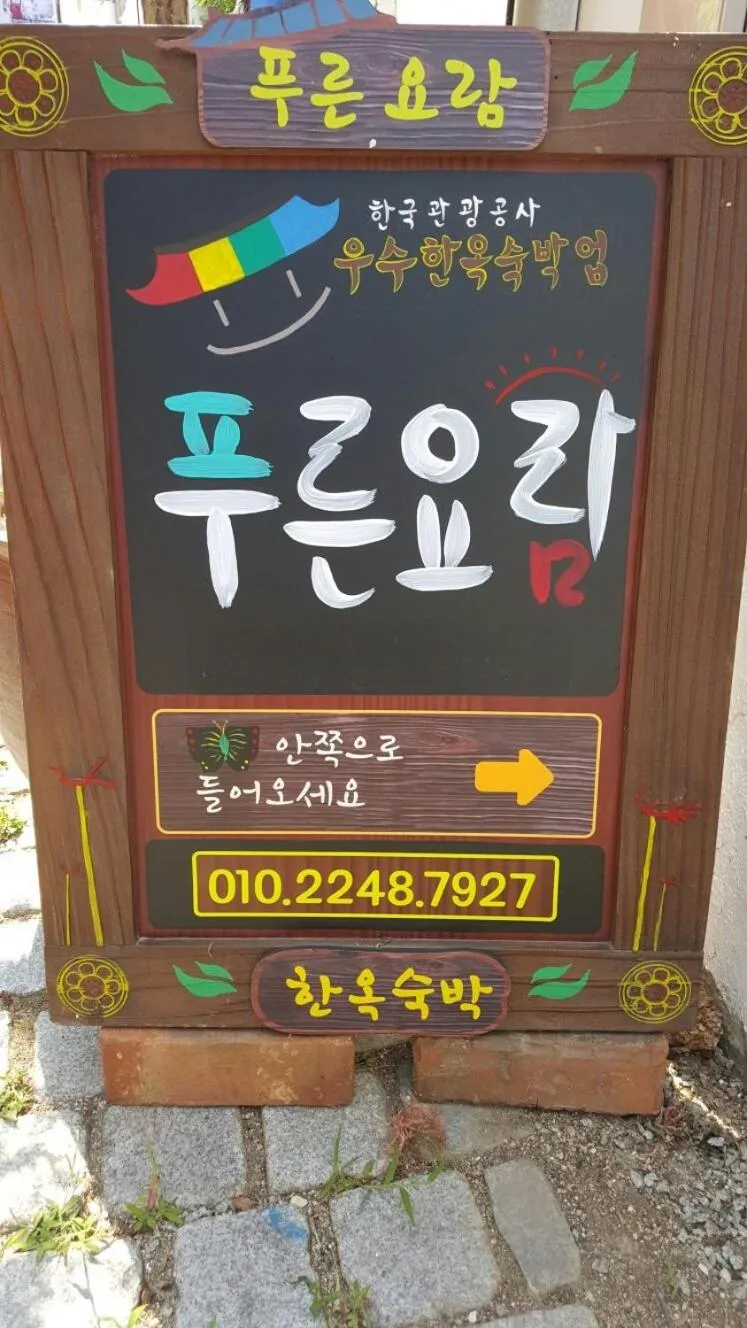 푸른 요람
한국관광공사
우수한옥숙박업
푸른요람
안쪽으로
들어오세요
010.2248.7927
한옥숙박